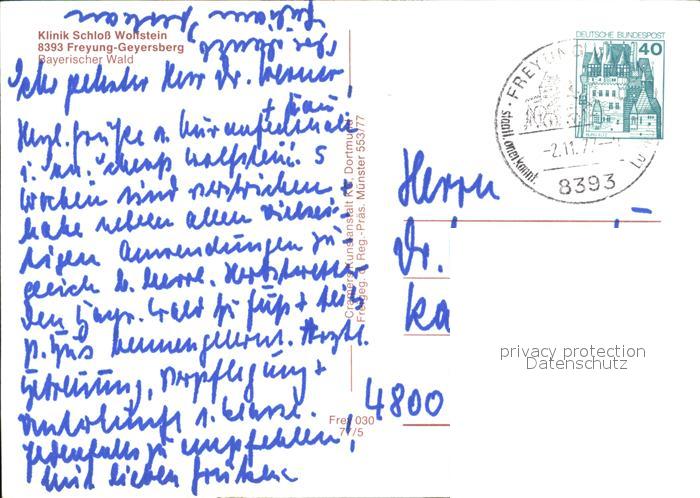 Klinik Schloß Wolfstein
8393 Freyung-Geyersberg
Bayerischer Wald
Sehr geehrter Herr Dr. Werner!
+ Frau
Herzl. Grüße v. Kuraufenthalt
Schloß Wolfstein. 5
Wochen sind verstrichen
habe neben allen vielsei-
tigen Anwendungen zu-
gleich b. herrl. Herbstwetter
den bayr. Wald zu Fuß +
p. Bus kennengelernt. Ärztl.
Betreuung, Verpflegung +
Unterkunft 1. Klasse.
Jedenfalls zu empfehlen!
Mit lieben Grüßen
Cramers Kunstanstalt KG, Dortmund
Freigeg. d. Reg.-Präs. Münster 553/77
Frey 030
77/5
DEUTSCHE BUNDESPOST
40
FREYUNG
staatl. anerkannt.
-2.11.77
8393
Herrn
Dr.
Ka
4800
privacy protection
Datenschutz